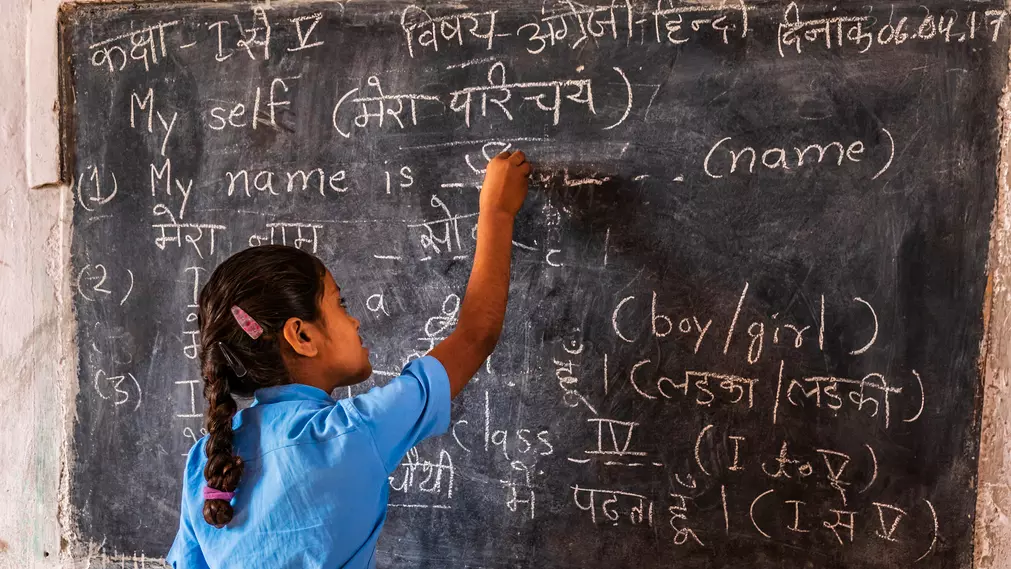 कक्षा - I से V विषय - अंग्रेजी-हिन्दी दिनांक 06.04.17
My self (मेरा - परिचय)
(1) My name is S (name)
मेरा नाम सो
(2) I a (boy/girl)
हूँ। (लड़का/लड़की)
(3) I class IV (I to V)
चौथी में पढ़ता हूँ। (I स V)